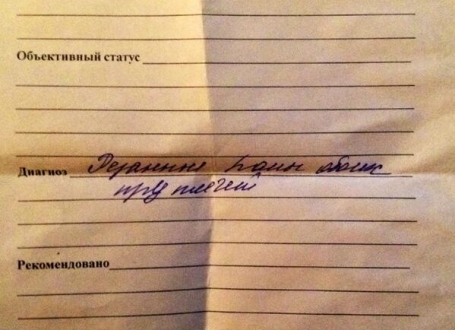 Объективный статус
Диагноз Резанные раны обоих
пр/плечий
Рекомендовано